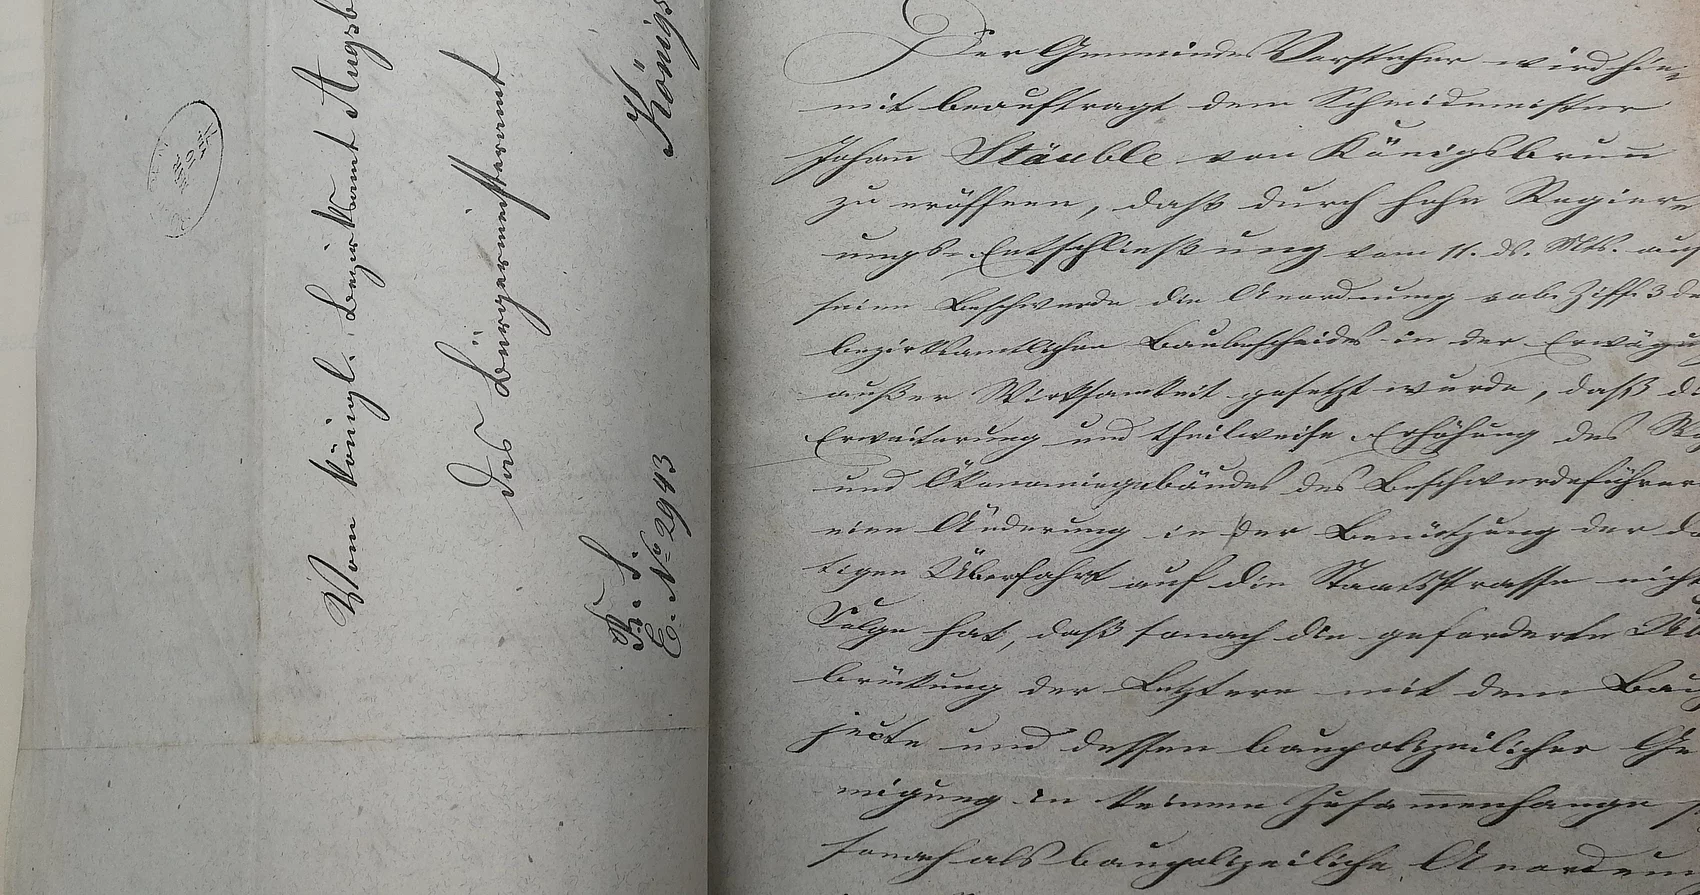 Vom königl. Bezirksamt Augsb
das Bürgermeisteramt
Königs
K. S.
E. No 2943
Der Gemeinde Vorsteher wird hier
mit beauftragt dem Schmidemeister
Johann Stäuble von Königsbrunn
zu eröffnen, daß durch hohe Regier
ungs-Entschließung vom 11. ds. Mts. auf
seine Beschwerde die Anordnung sub Ziff. 3 de
bezirksamtlichen Baubescheides in der Erwägung
außer Wirksamkeit gesetzt wurde, daß di
Erweiterung und theilweise Erhöhung des
und Ökonomiegebäudes des Beschwerdeführer
eine Änderung in der Benützung der do
tigen Überfahrt auf die Staatsstrasse nicht
Folge hat, daß sonach die geforderte
brückung der Letztere mit dem Bau
jecte und dessen baupolizeilicher Ge
migung in keinem Zusammenhange
sonach als baupolizeiliche Anordnun